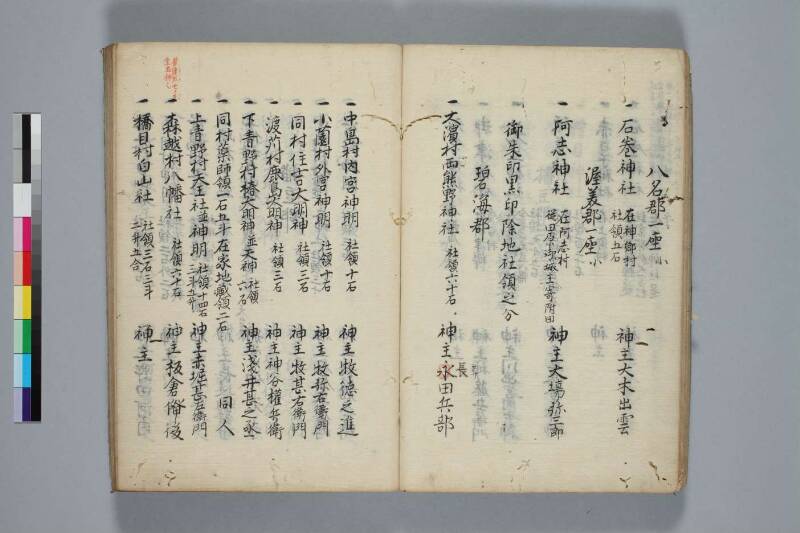 八名郡一座小
一 石巻神社 在神郷村 社領五石 神主大木出雲
渥美郡一座小
一 阿志神社 在阿志村 従田原御城主寄附田 神主大場弥三郎
御朱印黒印除地社領之分
碧海郡
一 大濱村両熊野神社 社領六十石 神主永田兵部
長
一 中島村内宮神明 社領十石 神主牧徳之進
一 小薗村外宮神明 社領十石 神主牧弥右衛門
一 同村住吉大明神 社領三石 神主牧甚右衛門
一 渡村鹿島大明神 社領三石 神主神谷権兵衛
一 下青野村椿大明神並天神 社領六石 神主浅井甚之丞
一 同村薬師領一石五斗在家地蔵領二石 同人
一 上青野村天王社並神明 社領十四石三斗五升 神主赤堀甚左衛門
一 森越村八幡社 社領六十石 神主板倉備後
一 橋目村白山社 社領三石三斗二升五合 神主